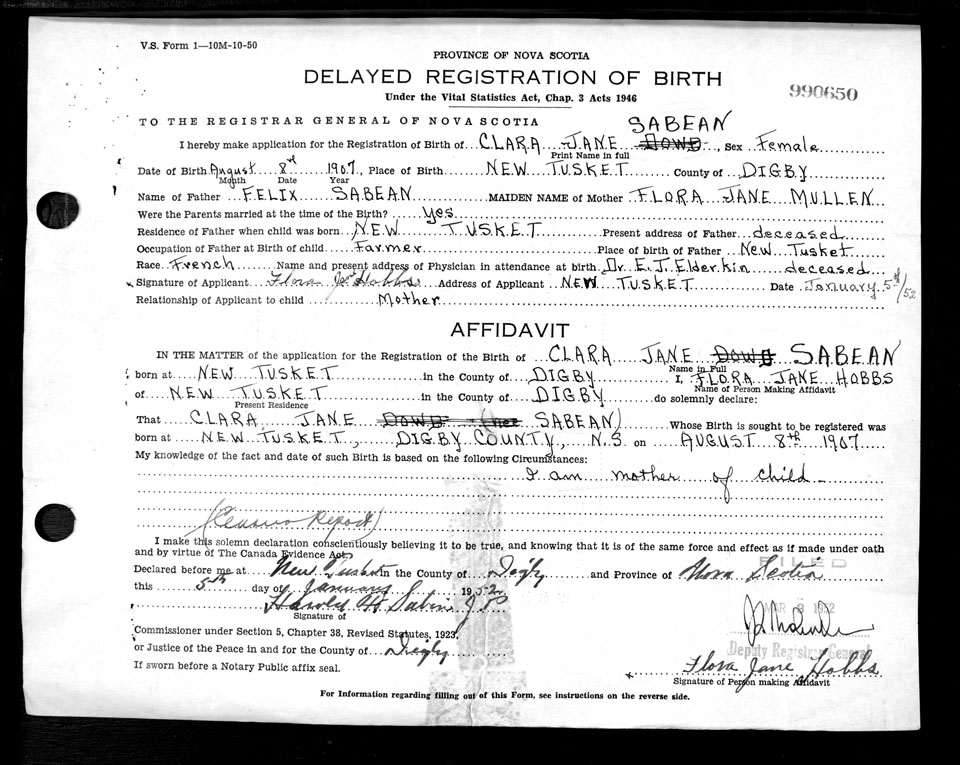 V.S. Form 1—10M-10-50
PROVINCE OF NOVA SCOTIA
DELAYED REGISTRATION OF BIRTH
990650
Under the Vital Statistics Act, Chap. 3 Acts 1946
TO THE REGISTRAR GENERAL OF NOVA SCOTIA
SABEAN
I hereby make application for the Registration of Birth of CLARA JANE DOWD, Sex Female
Print Name in full
Date of Birth August 8th 1907, Place of Birth NEW TUSKET County of DIGBY
Month Date Year
Name of Father FELIX SABEAN MAIDEN NAME of Mother FLORA JANE MULLEN
Were the Parents married at the time of the Birth? yes
Residence of Father when child was born NEW TUSKET Present address of Father deceased
Occupation of Father at Birth of child Farmer Place of birth of Father New Tusket
Race French Name and present address of Physician in attendance at birth Dr. E.J. Elderkin deceased
Signature of Applicant Flora Jane Hobbs Address of Applicant NEW TUSKET Date January 5th/52
Relationship of Applicant to child Mother
AFFIDAVIT
IN THE MATTER of the application for the Registration of the Birth of CLARA JANE DOWD SABEAN
Name in Full
born at NEW TUSKET in the County of DIGBY I, FLORA JANE HOBBS
Name of Person Making Affidavit
of NEW TUSKET in the County of DIGBY do solemnly declare:
Present Residence
That CLARA JANE DOWD (nee SABEAN) Whose Birth is sought to be registered was
born at NEW TUSKET, DIGBY COUNTY, N.S. on AUGUST 8th 1907
My knowledge of the fact and date of such Birth is based on the following Circumstances:
I am mother of child
(Census Report)
I make this solemn declaration conscientiously believing it to be true, and knowing that it is of the same force and effect as if made under oath
and by virtue of The Canada Evidence Act.
FILED
Declared before me at New Tusket in the County of Digby and Province of Nova Scotia
this 5th day of January 1952
MAR 3 1952
Harold H. Sabin J.P.
Signature of
Commissioner under Section 5, Chapter 38, Revised Statutes, 1923,
or Justice of the Peace in and for the County of Digby
Deputy Registrar General
If sworn before a Notary Public affix seal.
Flora Jane Hobbs
Signature of Person making Affidavit
For Information regarding filling out of this Form, see instructions on the reverse side.